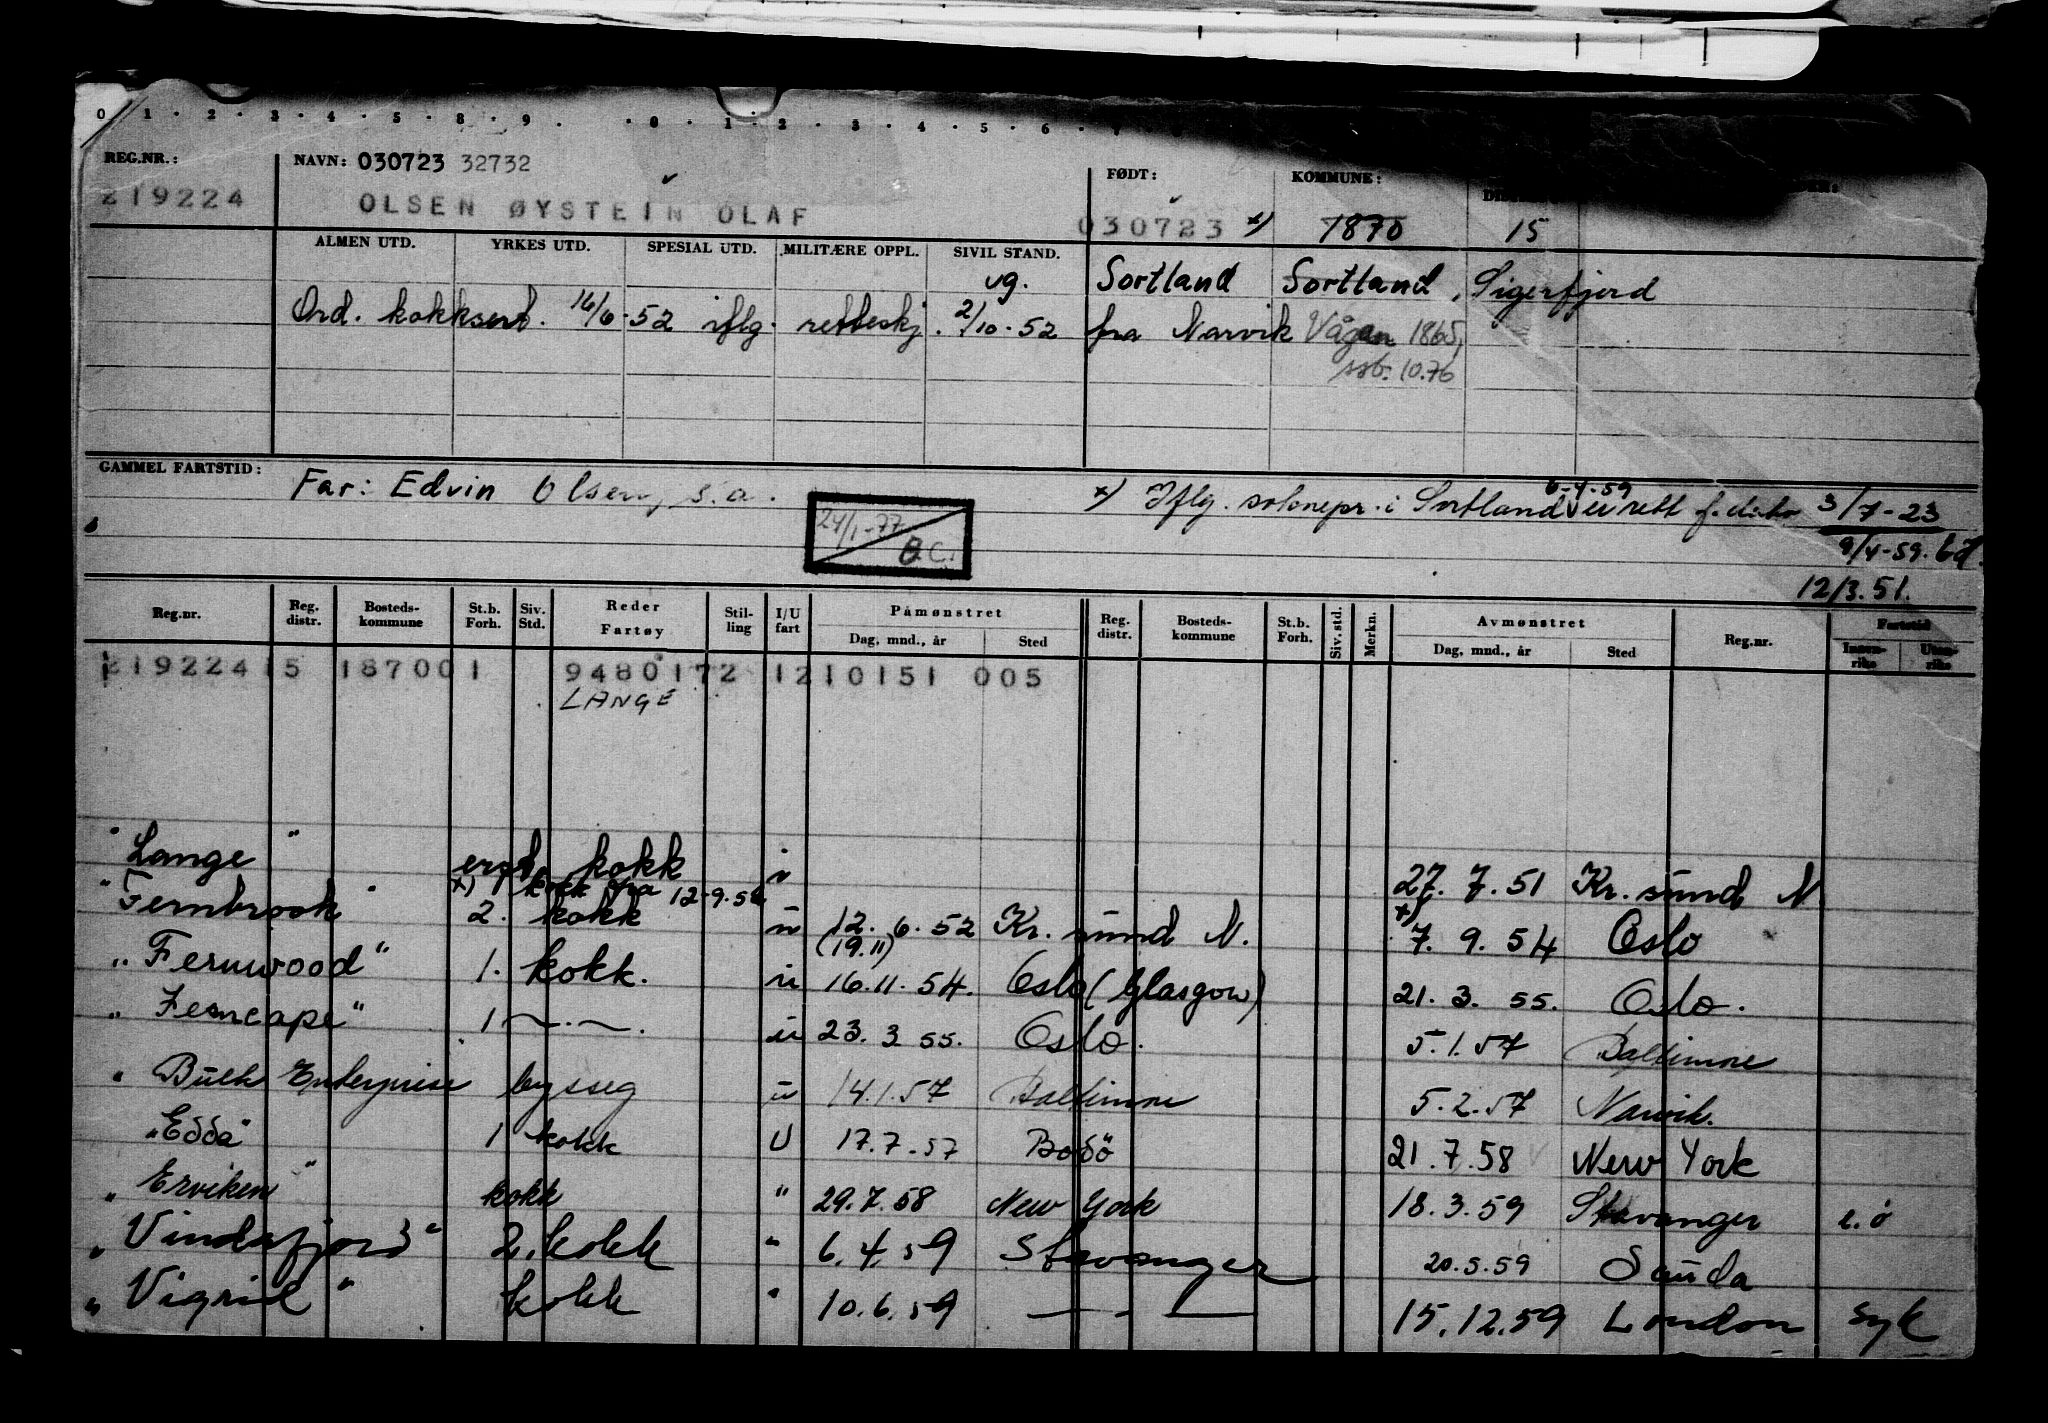 0 1 · 2 · 3 · 4 · 5 · 8 · 9 · · 0 · 1 · 2 · 3 · 4 · 5 · 6 ·
REG.NR.: NAVN: 030723 32732 FØDT: KOMMUNE:
219224 OLSEN ØYSTEIN OLAF 030723 x) 1870 15
ALMEN UTD. YRKES UTD. SPESIAL UTD. MILITÆRE OPPL. SIVIL STAND.
ug. Sortland Sortland, Sigerfjord
Ord. kokksert. 16/6-52 iflg. retteskj. 2/10-52 fra Narvik Vågan 1865,
ssb. 10.76
GAMMEL FARTSTID: Far: Edvin Olsen, s.a.
x) Iflg. soknepr. i Sortland 6-4-59 er rett f.dato 3/7-23
24/1-77 B.C. 9/4-59.
12/3.51.
Reg.nr. Reg. distr. Bosteds-kommune St.b. Forh. Siv. Std. Reder Fartøy Stil-ling I/U fart Påmønstret Dag, mnd., år Sted Reg. distr. Bosteds-kommune St.b. Forh. Siv. std. Merkn. Avmønstret Dag, mnd., år Sted Reg.nr. Fartstid Innen-riks Uten-riks
219224 15 187001 9480172 1210151 005
LANGE
"Lange" kokk i 27. 7. 51 Kr. sund N
x) kokk fra 12-9-52
"Fernbrook" 2. kokk u 12. 6. 52 Kr. sund N. x) 7. 9. 54 Oslo
(19.11)
"Fernwood" 1. kokk. u 16.11.54. Oslo (Glasgow) 21. 3. 55. Oslo.
"Ferncape" 1 ~.~. u 23. 3 55. Oslo. 5.1.57 Baltimore
" Bulk Enterprise bysseg u 14.1.57 Baltimore 5.2.57 Narvik.
"Edda" 1 kokk U 17.7.57 Bodö 21.7.58 New York
"Erviken" kokk " 29.7.58 New York 18.3.59 Stavanger e.ö
"Vindafjord" 2. kokk " 6.4.59 Stavanger 20.5.59 Sauda
"Vigrid" kokk " 10.6.59 — " — 15.12.59 London syk